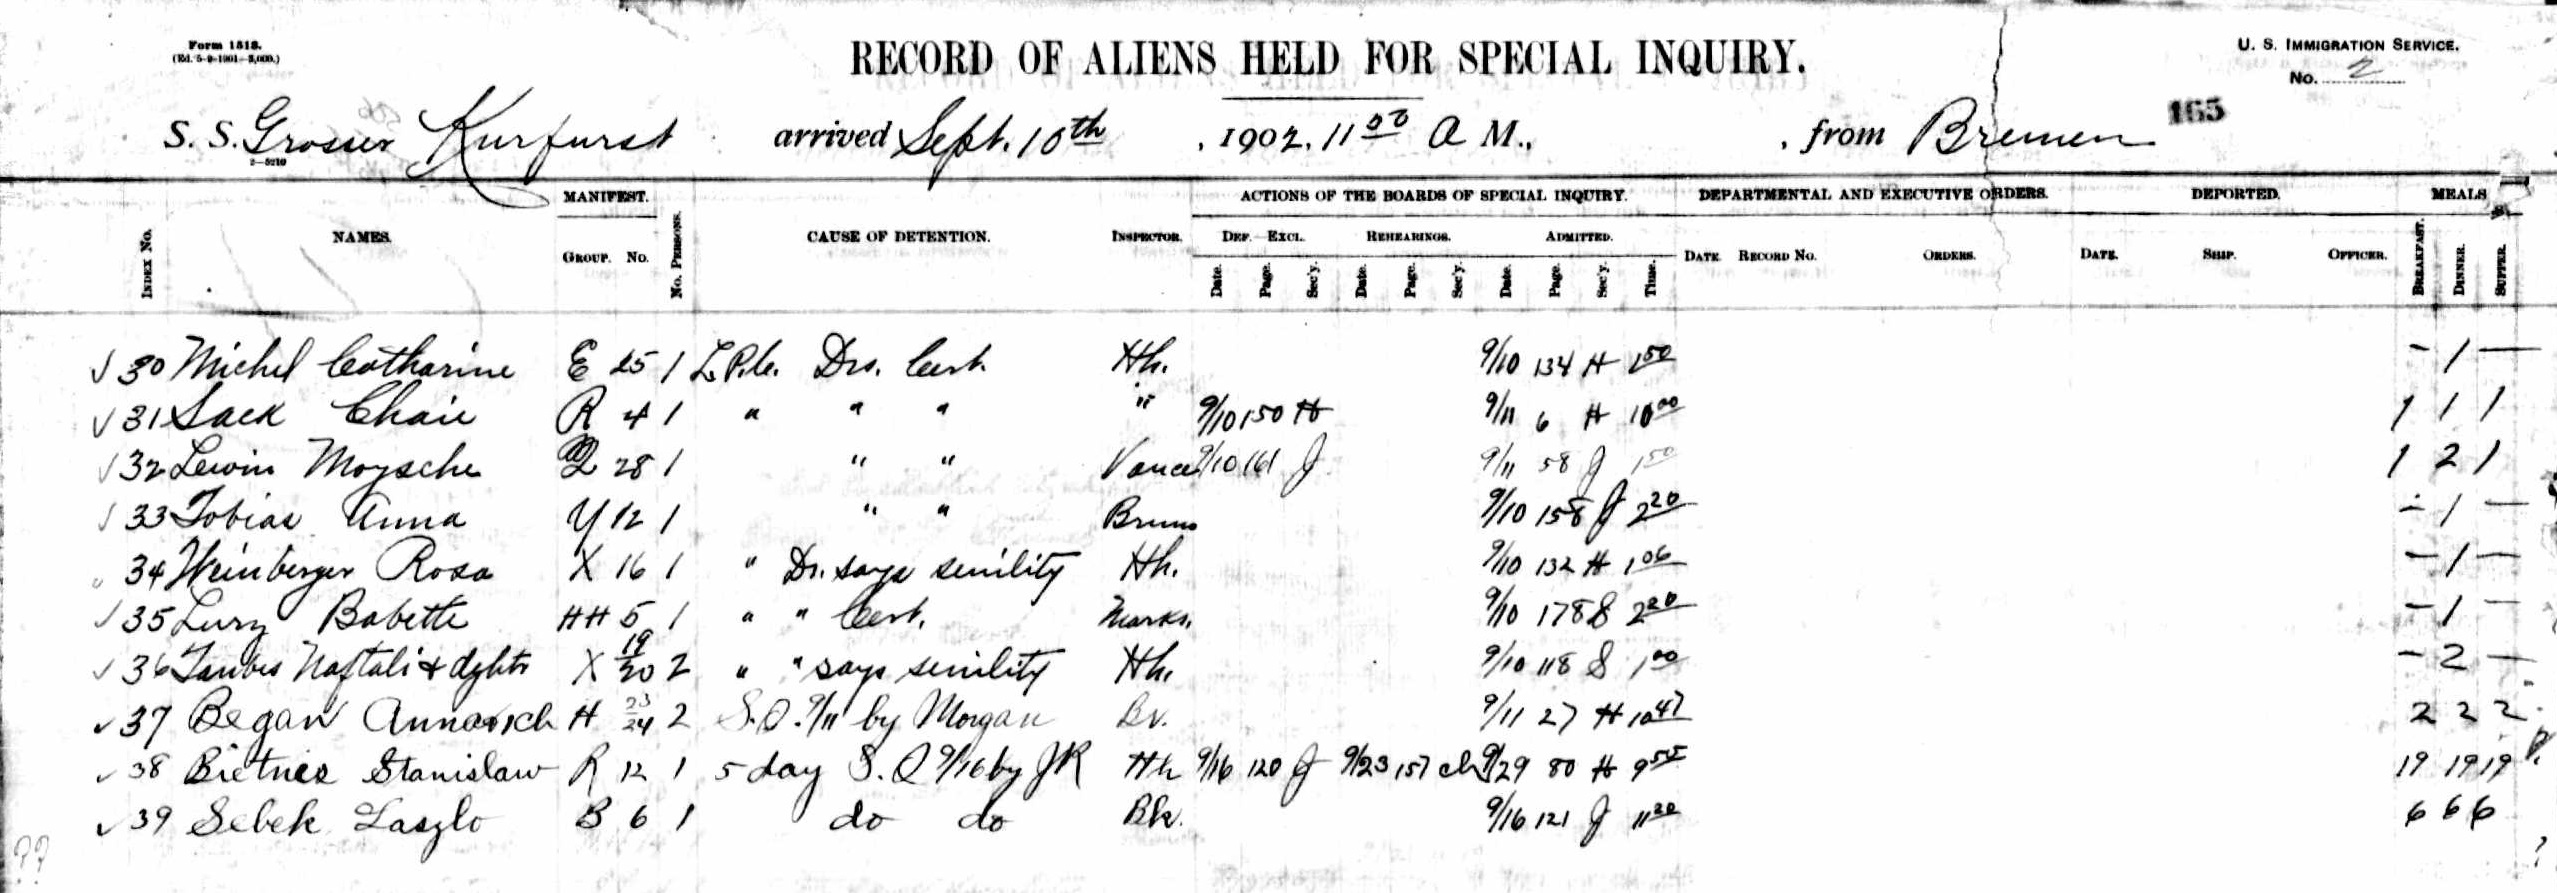 Form 1513.
(Ed. 5-9-1901-3,000.)
RECORD OF ALIENS HELD FOR SPECIAL INQUIRY.
U. S. IMMIGRATION SERVICE.
No. 2
165
S. S. Grosser Kurfurst arrived Sept. 10th, 1902, 11 00 A M., , from Bremen
2-5210
INDEX No. NAMES. MANIFEST. GROUP. No. No. PERSONS. CAUSE OF DETENTION. INSPECTOR. ACTIONS OF THE BOARDS OF SPECIAL INQUIRY. DEF. EXCL. Date. Page. Sec'y. REHEARINGS. Date. Page. Sec'y. ADMITTED. Date. Page. Sec'y. Time. DEPARTMENTAL AND EXECUTIVE ORDERS. DATE. RECORD No. ORDERS. DEPORTED. DATE. SHIP. OFFICER. MEALS BREAKFAST. DINNER. SUPPER.
✓ 30 Michel Catharine E 25 1 L.P.C. Drs. Cert. Hh. 9/10 134 H 1 50 - 1 —
✓ 31 Sack Chaie R 4 1 " " " " 9/10 150 H 9/11 6 H 10 00 1 1 1
✓ 32 Lewin Moysche Q 28 1 " " Vance 9/10 161 J 9/11 58 J 1 50 1 2 1
✓ 33 Tobias Anna Y 12 1 " " 9/10 158 J 2 20 - 1 —
34 Weinberger Rosa X 16 1 " Dr. says senility Hh. 9/10 132 H 1 06 - 1 —
✓ 35 Lury Babette HH 5 1 " " Cert. Marks. 9/10 178 S 2 20 - 1 —
✓ 36 Taubes Naftali & dghtr X 19/20 2 " " says senility Hh. 9/10 118 S 1 00 - 2 —
✓ 37 Began Anna & ch H 23/24 2 S.Q. 9/11 by Morgan Bv. 9/11 27 H 10 47 2 2 2
✓ 38 Stanislaw R 12 1 5 day S.Q 9/16 by JR Hh 9/16 120 J 9/23 157 9/29 80 H 9 55 19 19 19
✓ 39 Sebek Laszlo B 6 1 do do Bk. 9/16 121 J 11 20 6 6 6
??